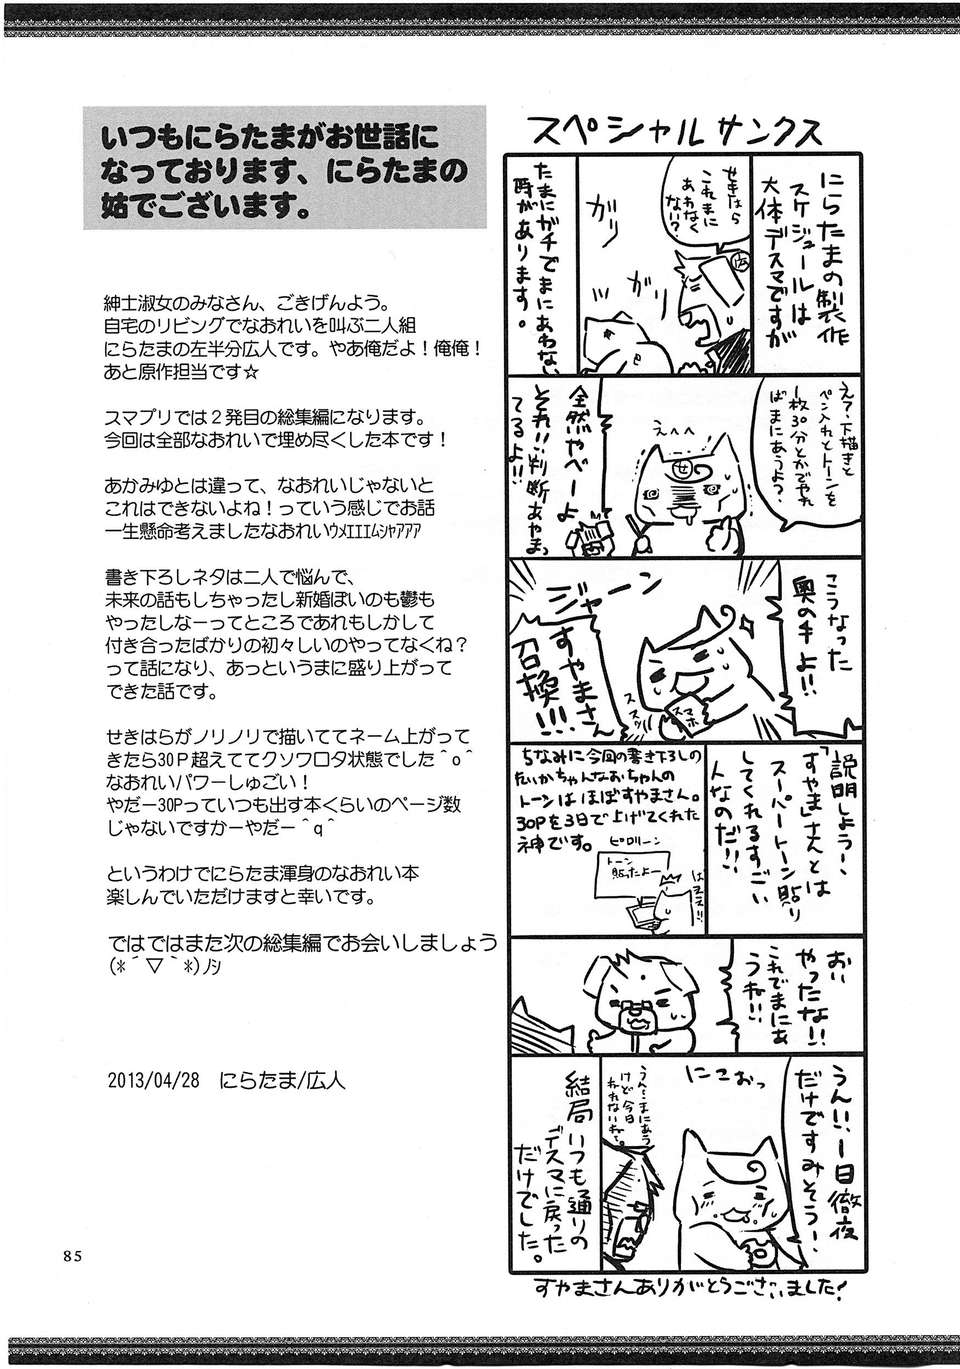 いつもにらたまがお世話に
なっております、にらたまの
姑でございます。
紳士淑女のみなさん、ごきげんよう。
自宅のリビングでなおれいを叫ぶ二人組
にらたまの左半分広人です。やあ俺だよ！俺俺！
あと原作担当です☆
スマプリでは２発目の総集編になります。
今回は全部なおれいで埋め尽くした本です！
あかみゆとは違って、なおれいじゃないと
これはできないよね！っていう感じでお話
一生懸命考えましたなおれいｳﾒｴｴｴﾑｼｬｱｱｱ
書き下ろしネタは二人で悩んで、
未来の話もしちゃったし新婚ぽいのも鬱も
やったしなーってところであれもしかして
付き合ったばかりの初々しいのやってなくね？
って話になり、あっというまに盛り上がって
できた話です。
せきはらがノリノリで描いててネーム上がって
きたら30Ｐ超えててクソワロタ状態でした＾o＾
なおれいパワーしゅごい！
やだー30Pっていつも出す本くらいのページ数
じゃないですかーやだー＾q＾
というわけでにらたま渾身のなおれい本
楽しんでいただけますと幸いです。
ではではまた次の総集編でお会いしましょう
(*´▽｀*)ﾉｼ
2013/04/28　にらたま/広人
85
スペシャルサンクス
にらたまの製作
スケジュールは
大体デスマですが
せきはら
これまに
あわなく
ない？
広
ガリ
ガリ
たまにガチでまにあわない
時があります。
えー？下描きと
ペン入れとトーンを
1枚30分とかでやれ
ばまにあうよ？
えへへ
せ
全然やべーよ
それ!!判断あやまっ
てるよ!!
こうなった
奥の手よ!!
スマホ
ススッ
ジャーン
すやまさん
召喚!!!
説明しよう！
「すやま」さんとは
スーパートーン貼り
してくれるすごい
人なのだ!!
ちなみに今回の書き下ろしの
れいかちゃんなおちゃんの
トーンはほぼすやまさん。
30Pを3日で上げてくれた
神です。
ピロリーン
トーン
貼ったよー
はええ!!
おい
やったな!!
これでまにあ
うね!!
うん!!、一日徹夜
だけですみそうー、
にこおっ
うん…まにあう
けど今日
ねれないね…。
結局いつも通りの
デスマに戻った
だけでした。
すやまさんありがとうございました！